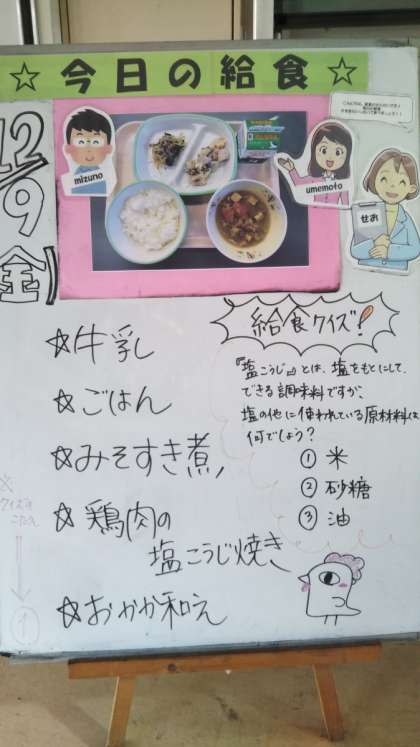 ☆今日の給食☆
12/9(金)
mizuno
umemoto
せお
☆牛乳
☆ごはん
☆みそすき煮
☆鶏肉の
塩こうじ焼き
☆おかか和え
給食クイズ!
『塩こうじ』とは、塩をもとにして、
できる調味料ですが、
塩の他に使われている原材料は
何でしょう?
① 米
② 砂糖
③ 油
※
クイズの
こたえ
①